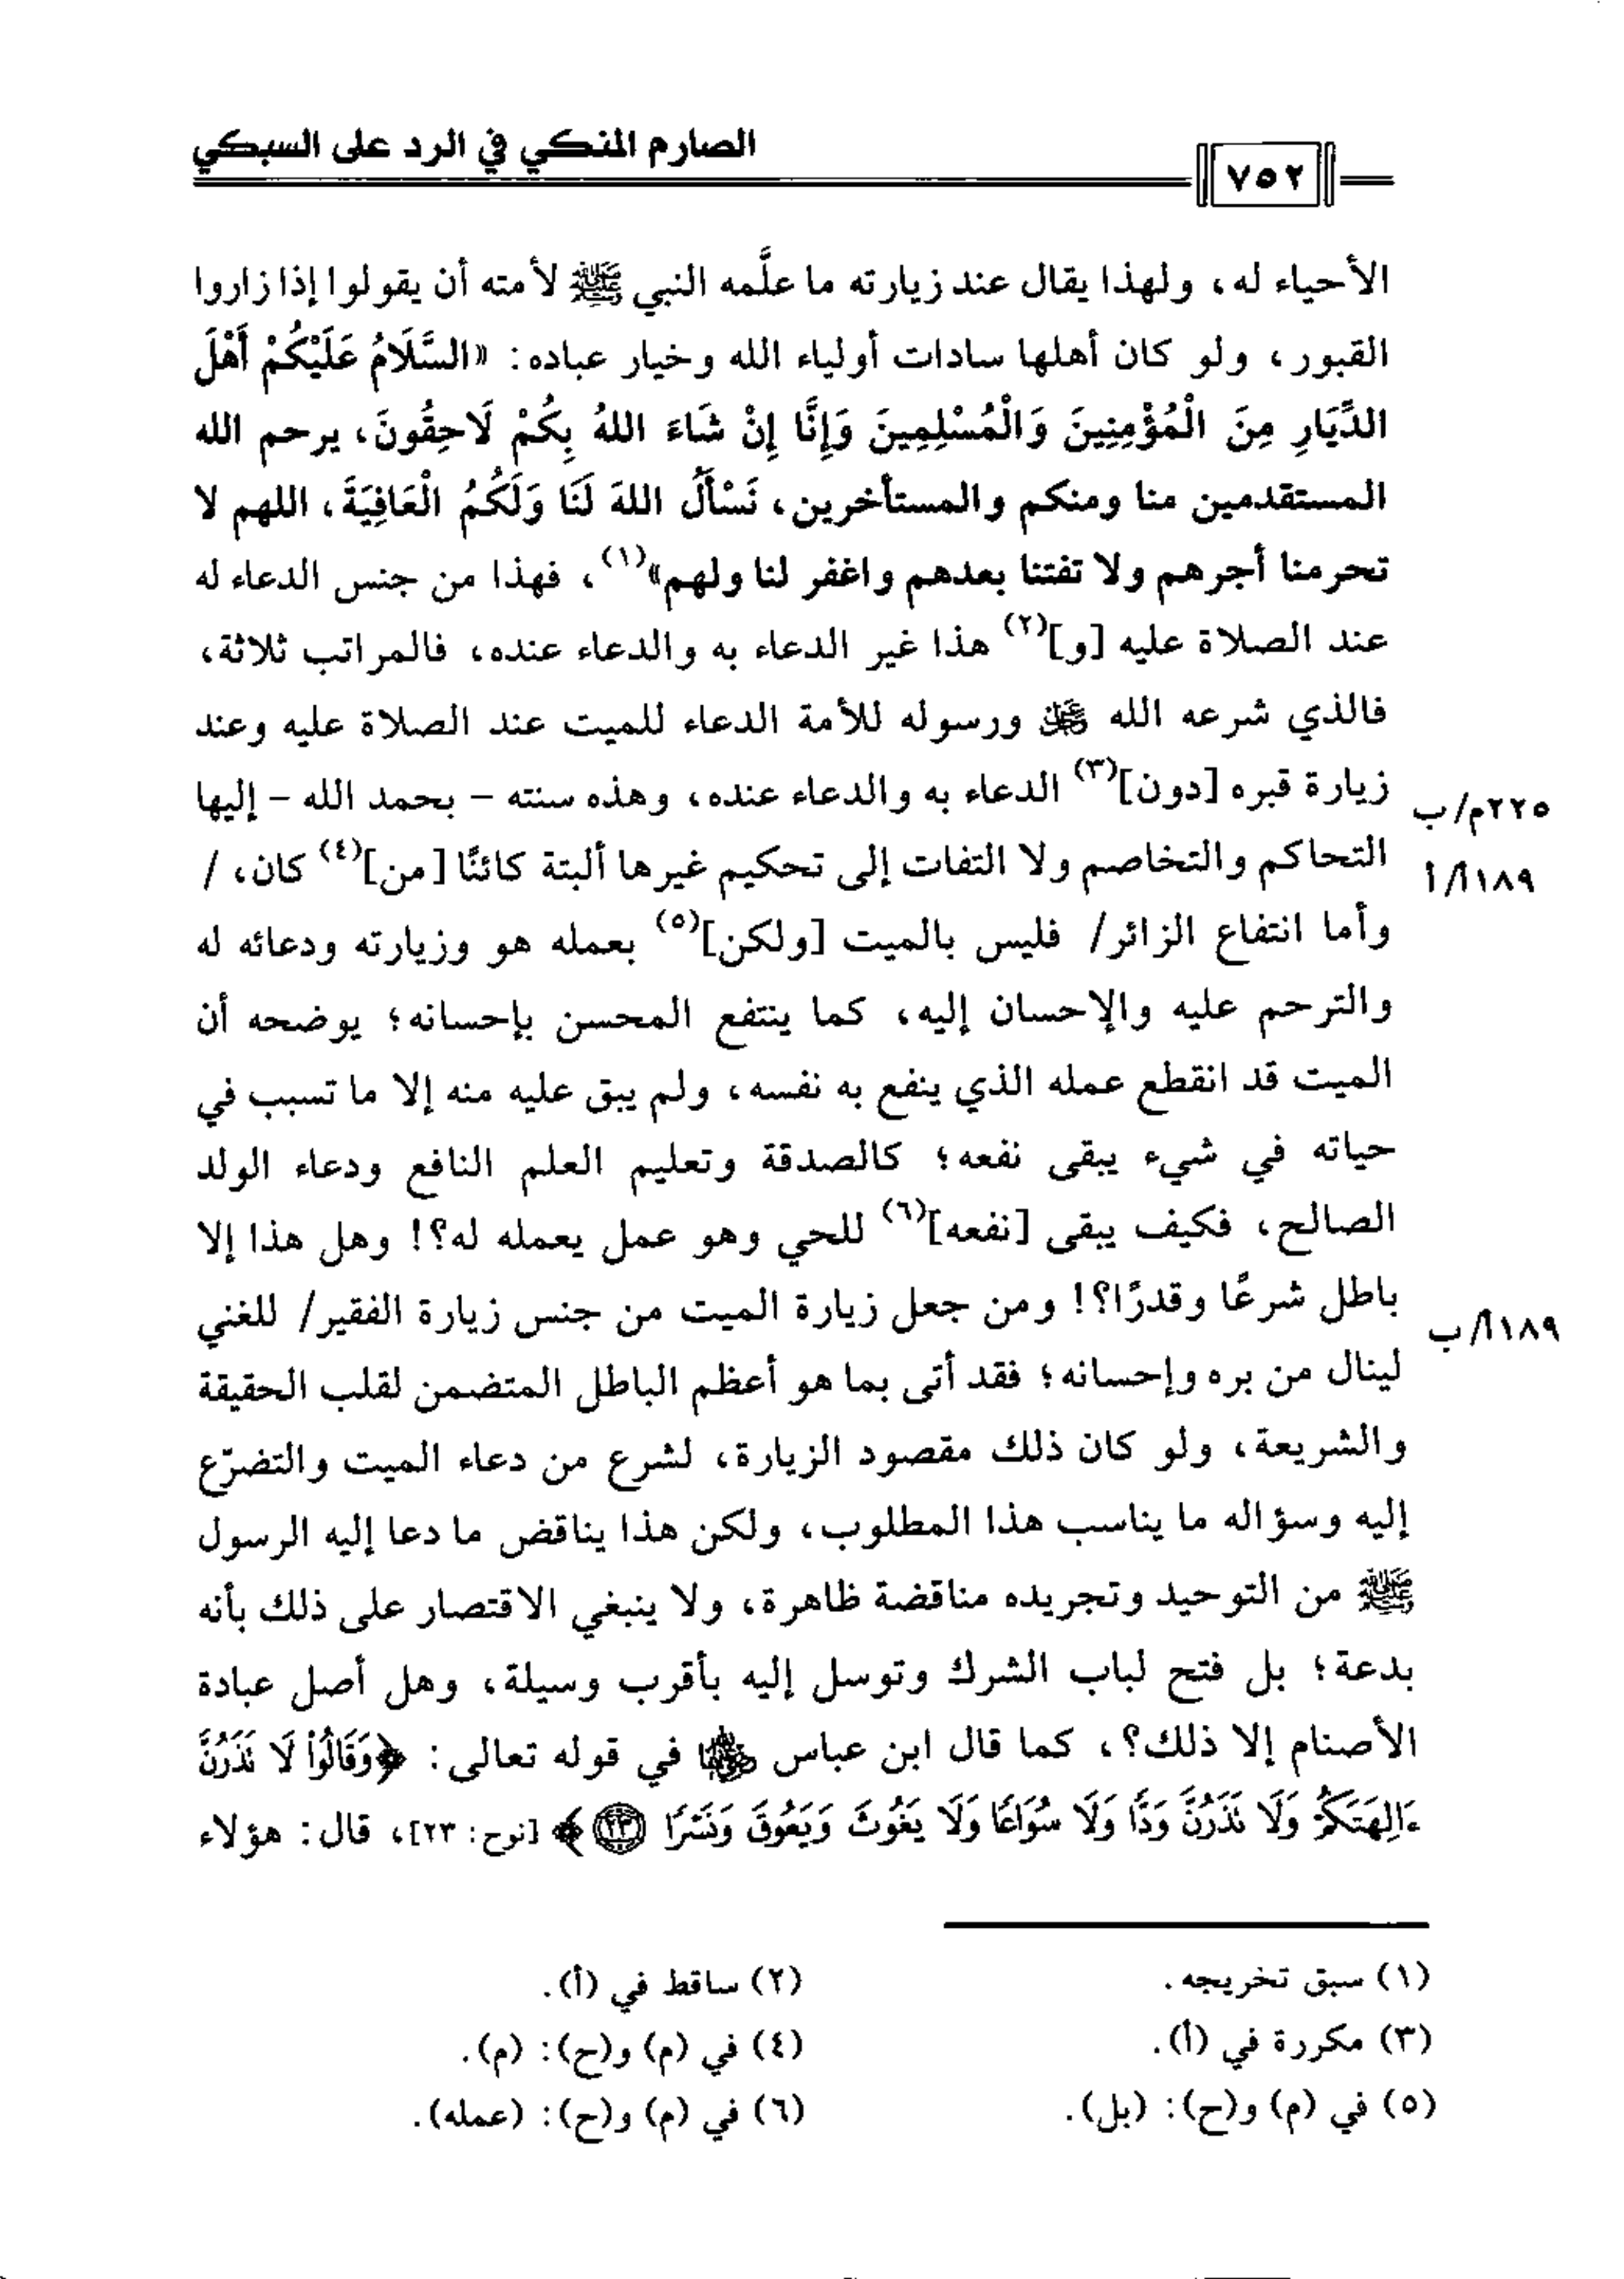 الصارم المنكي في الرد على السبكي
٧٥٢
الأحياء له، ولهذا يقال عند زيارته ما علَّمه النبي ﷺ لأمته أن يقولوا إذا زاروا
القبور، ولو كان أهلها سادات أولياء الله وخيار عباده: «السَّلَامُ عَلَيْكُمْ أَهْلَ
الدِّيَارِ مِنَ الْمُؤْمِنِينَ وَالْمُسْلِمِينَ وَإِنَّا إِنْ شَاءَ اللهُ بِكُمْ لَاحِقُونَ، يرحم الله
المستقدمين منا ومنكم والمستأخرين، نَسْأَلُ اللهَ لَنَا وَلَكُمُ الْعَافِيَةَ، اللهم لا
تحرمنا أجرهم ولا تفتنا بعدهم واغفر لنا ولهم»(١)، فهذا من جنس الدعاء له
عند الصلاة عليه [و](٢) هذا غير الدعاء به والدعاء عنده، فالمراتب ثلاثة،
فالذي شرعه الله ﷻ ورسوله للأمة الدعاء للميت عند الصلاة عليه وعند
زيارة قبره [دون](٣) الدعاء به والدعاء عنده، وهذه سنته - بحمد الله - إليها
٢٢٥م/ب
التحاكم والتخاصم ولا التفات إلى تحكيم غيرها ألبتة كائنًا [من](٤) كان، /
١٨٩أ/أ
وأما انتفاع الزائر/ فليس بالميت [ولكن](٥) بعمله هو وزيارته ودعائه له
والترحم عليه والإحسان إليه، كما ينتفع المحسن بإحسانه؛ يوضحه أن
الميت قد انقطع عمله الذي ينفع به نفسه، ولم يبق عليه منه إلا ما تسبب في
حياته في شيء يبقى نفعه؛ كالصدقة وتعليم العلم النافع ودعاء الولد
الصالح، فكيف يبقى [نفعه](٦) للحي وهو عمل يعمله له؟! وهل هذا إلا
باطل شرعًا وقدرًا؟! ومن جعل زيارة الميت من جنس زيارة الفقير/ للغني
١٨٩أ/ب
لينال من بره وإحسانه؛ فقد أتى بما هو أعظم الباطل المتضمن لقلب الحقيقة
والشريعة، ولو كان ذلك مقصود الزيارة، لشرع من دعاء الميت والتضرّع
إليه وسؤاله ما يناسب هذا المطلوب، ولكن هذا يناقض ما دعا إليه الرسول
ﷺ من التوحيد وتجريده مناقضة ظاهرة، ولا ينبغي الاقتصار على ذلك بأنه
بدعة؛ بل فتح لباب الشرك وتوسل إليه بأقرب وسيلة، وهل أصل عبادة
الأصنام إلا ذلك؟، كما قال ابن عباس رضي الله عنهما في قوله تعالى: ﴿وَقَالُوا۟ لَا نَذَرُنَّ
ءَالِهَتَكُمْ وَلَا نَذَرُنَّ وَدًّا وَلَا سُوَاعًا وَلَا يَغُوثَ وَيَعُوقَ وَنَسْرًا ۝٢٣﴾ [نوح: ٢٣]، قال: هؤلاء
(١) سبق تخريجه.
(٢) ساقط في (أ).
(٣) مكررة في (أ).
(٤) في (م) و(ح): (م).
(٥) في (م) و(ح): (بل).
(٦) في (م) و(ح): (عمله).